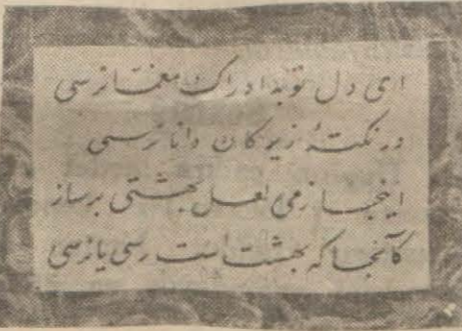 ای دل تو به ادراک معمّا نرسی
در نکتهٔ زیرکان دانا نرسی
اینجا ز می لعل بهشتی برساز
کآنجا که بهشت است رسی یا نرسی